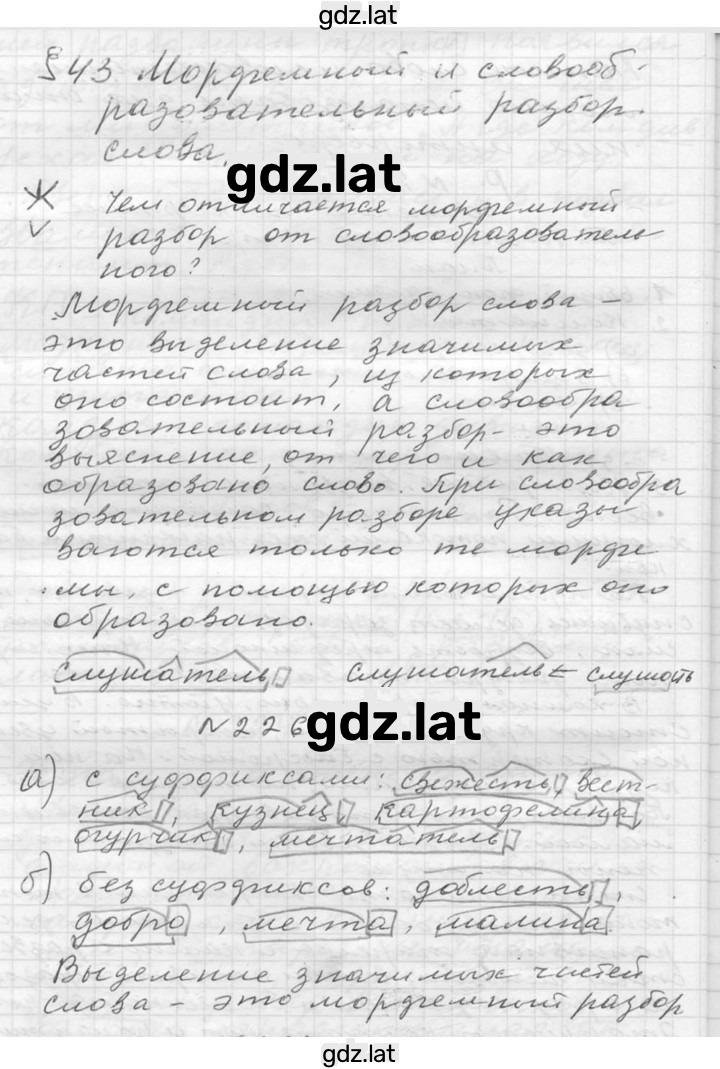 gdz.lat
§43 Морфемный и словооб-
разовательный разбор
слова.
gdz.lat
Чем отличается морфемный
разбор от словообразователь
ного?
Морфемный разбор слова –
это выделение значимых
частей слова, из которых
оно состоит, а словообра
зовательный разбор- это
выяснение, от чего и как
образовано слово. При словообра
зовательном разборе указы
ваются только те морфе
мы, с помощью которых оно
образовано.
слушатель слушатель ← слушать
N226
gdz.lat
а) с суффиксами: свежесть, вест-
ник, кузнец, картофелина,
огурчик, мечтатель,
б) без суффиксов: доблесть,
добро, мечта, малина.
Выделение значимых частей
слова – это морфемный разбор
gdz.lat